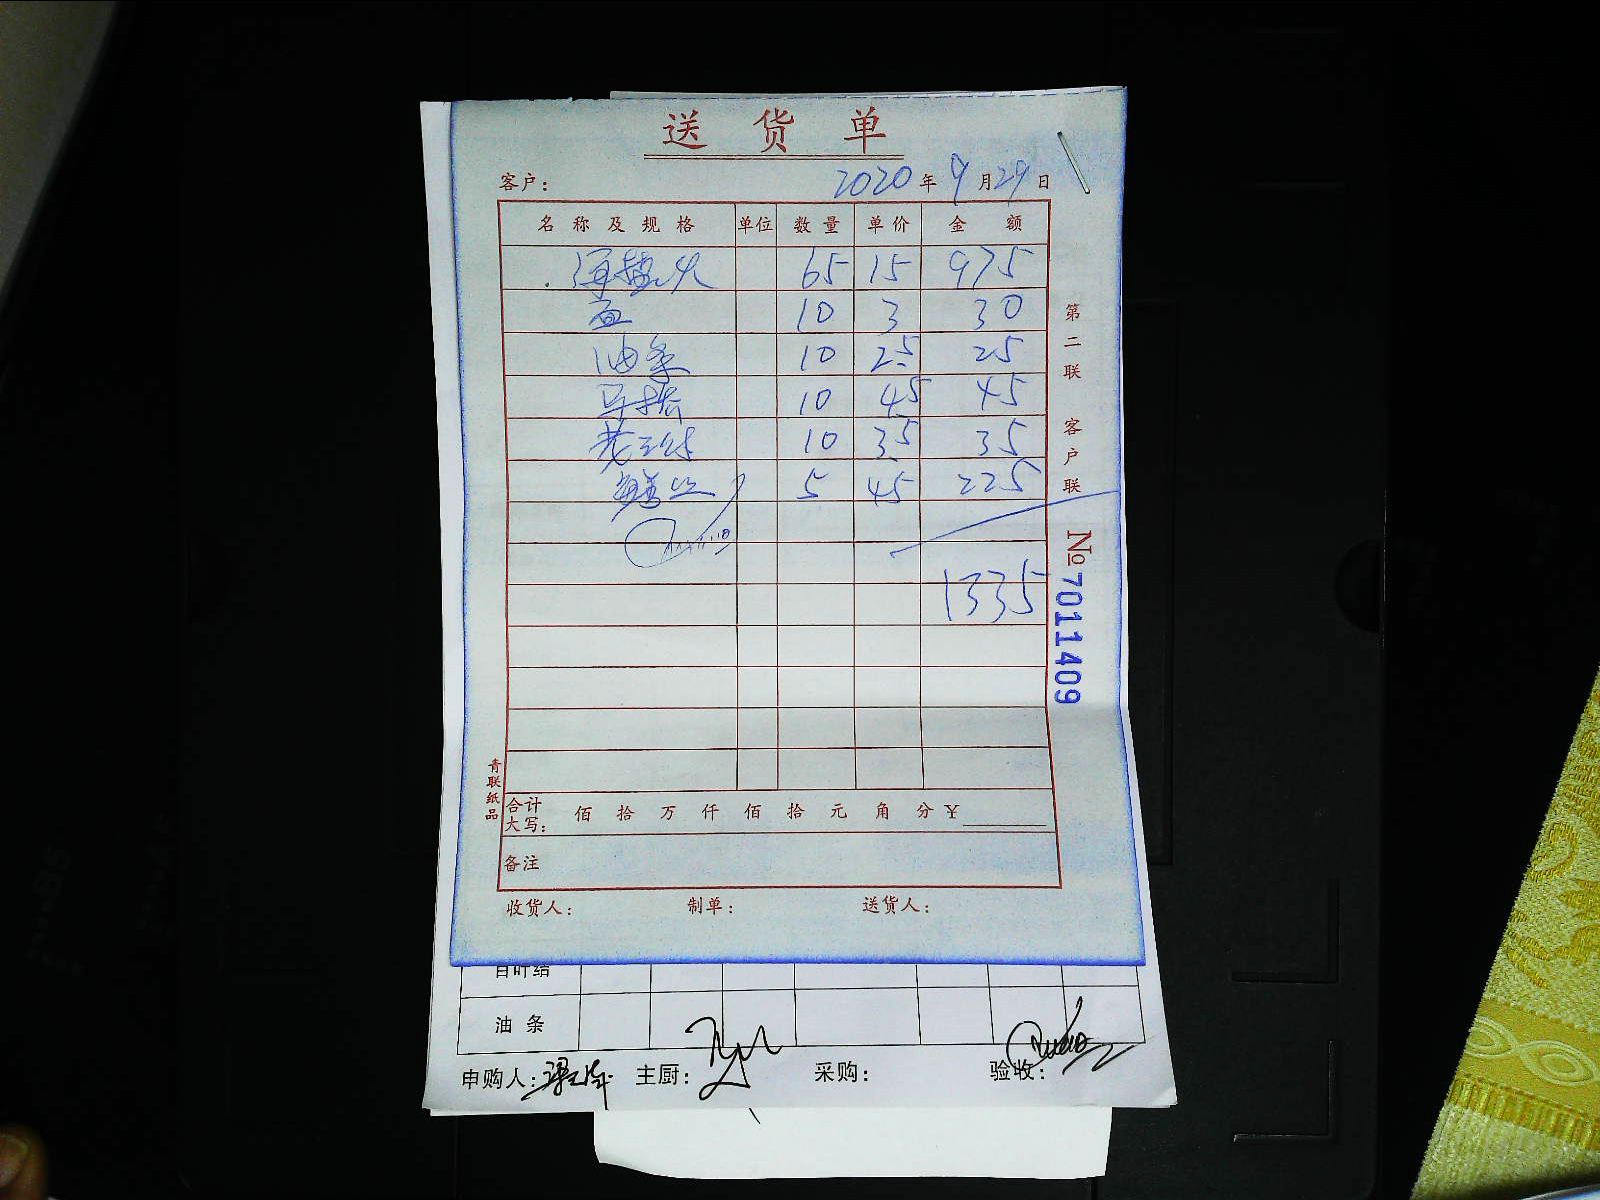 送货单
客户： 2020年9月29日
名称及规格 单位 数量 单价 金额
65 15 975
血 10 3 30
油条 10 2.5 25
10 4.5 45
10 3.5 35
鳝丝 5 45 225
1335
合计大写： 佰 拾 万 仟 佰 拾 元 角 分 ￥
备注
收货人： 制单： 送货人：
第二联 客户联
№7011409
青联纸品
百叶结
油条
申购人： 主厨： 采购： 验收：